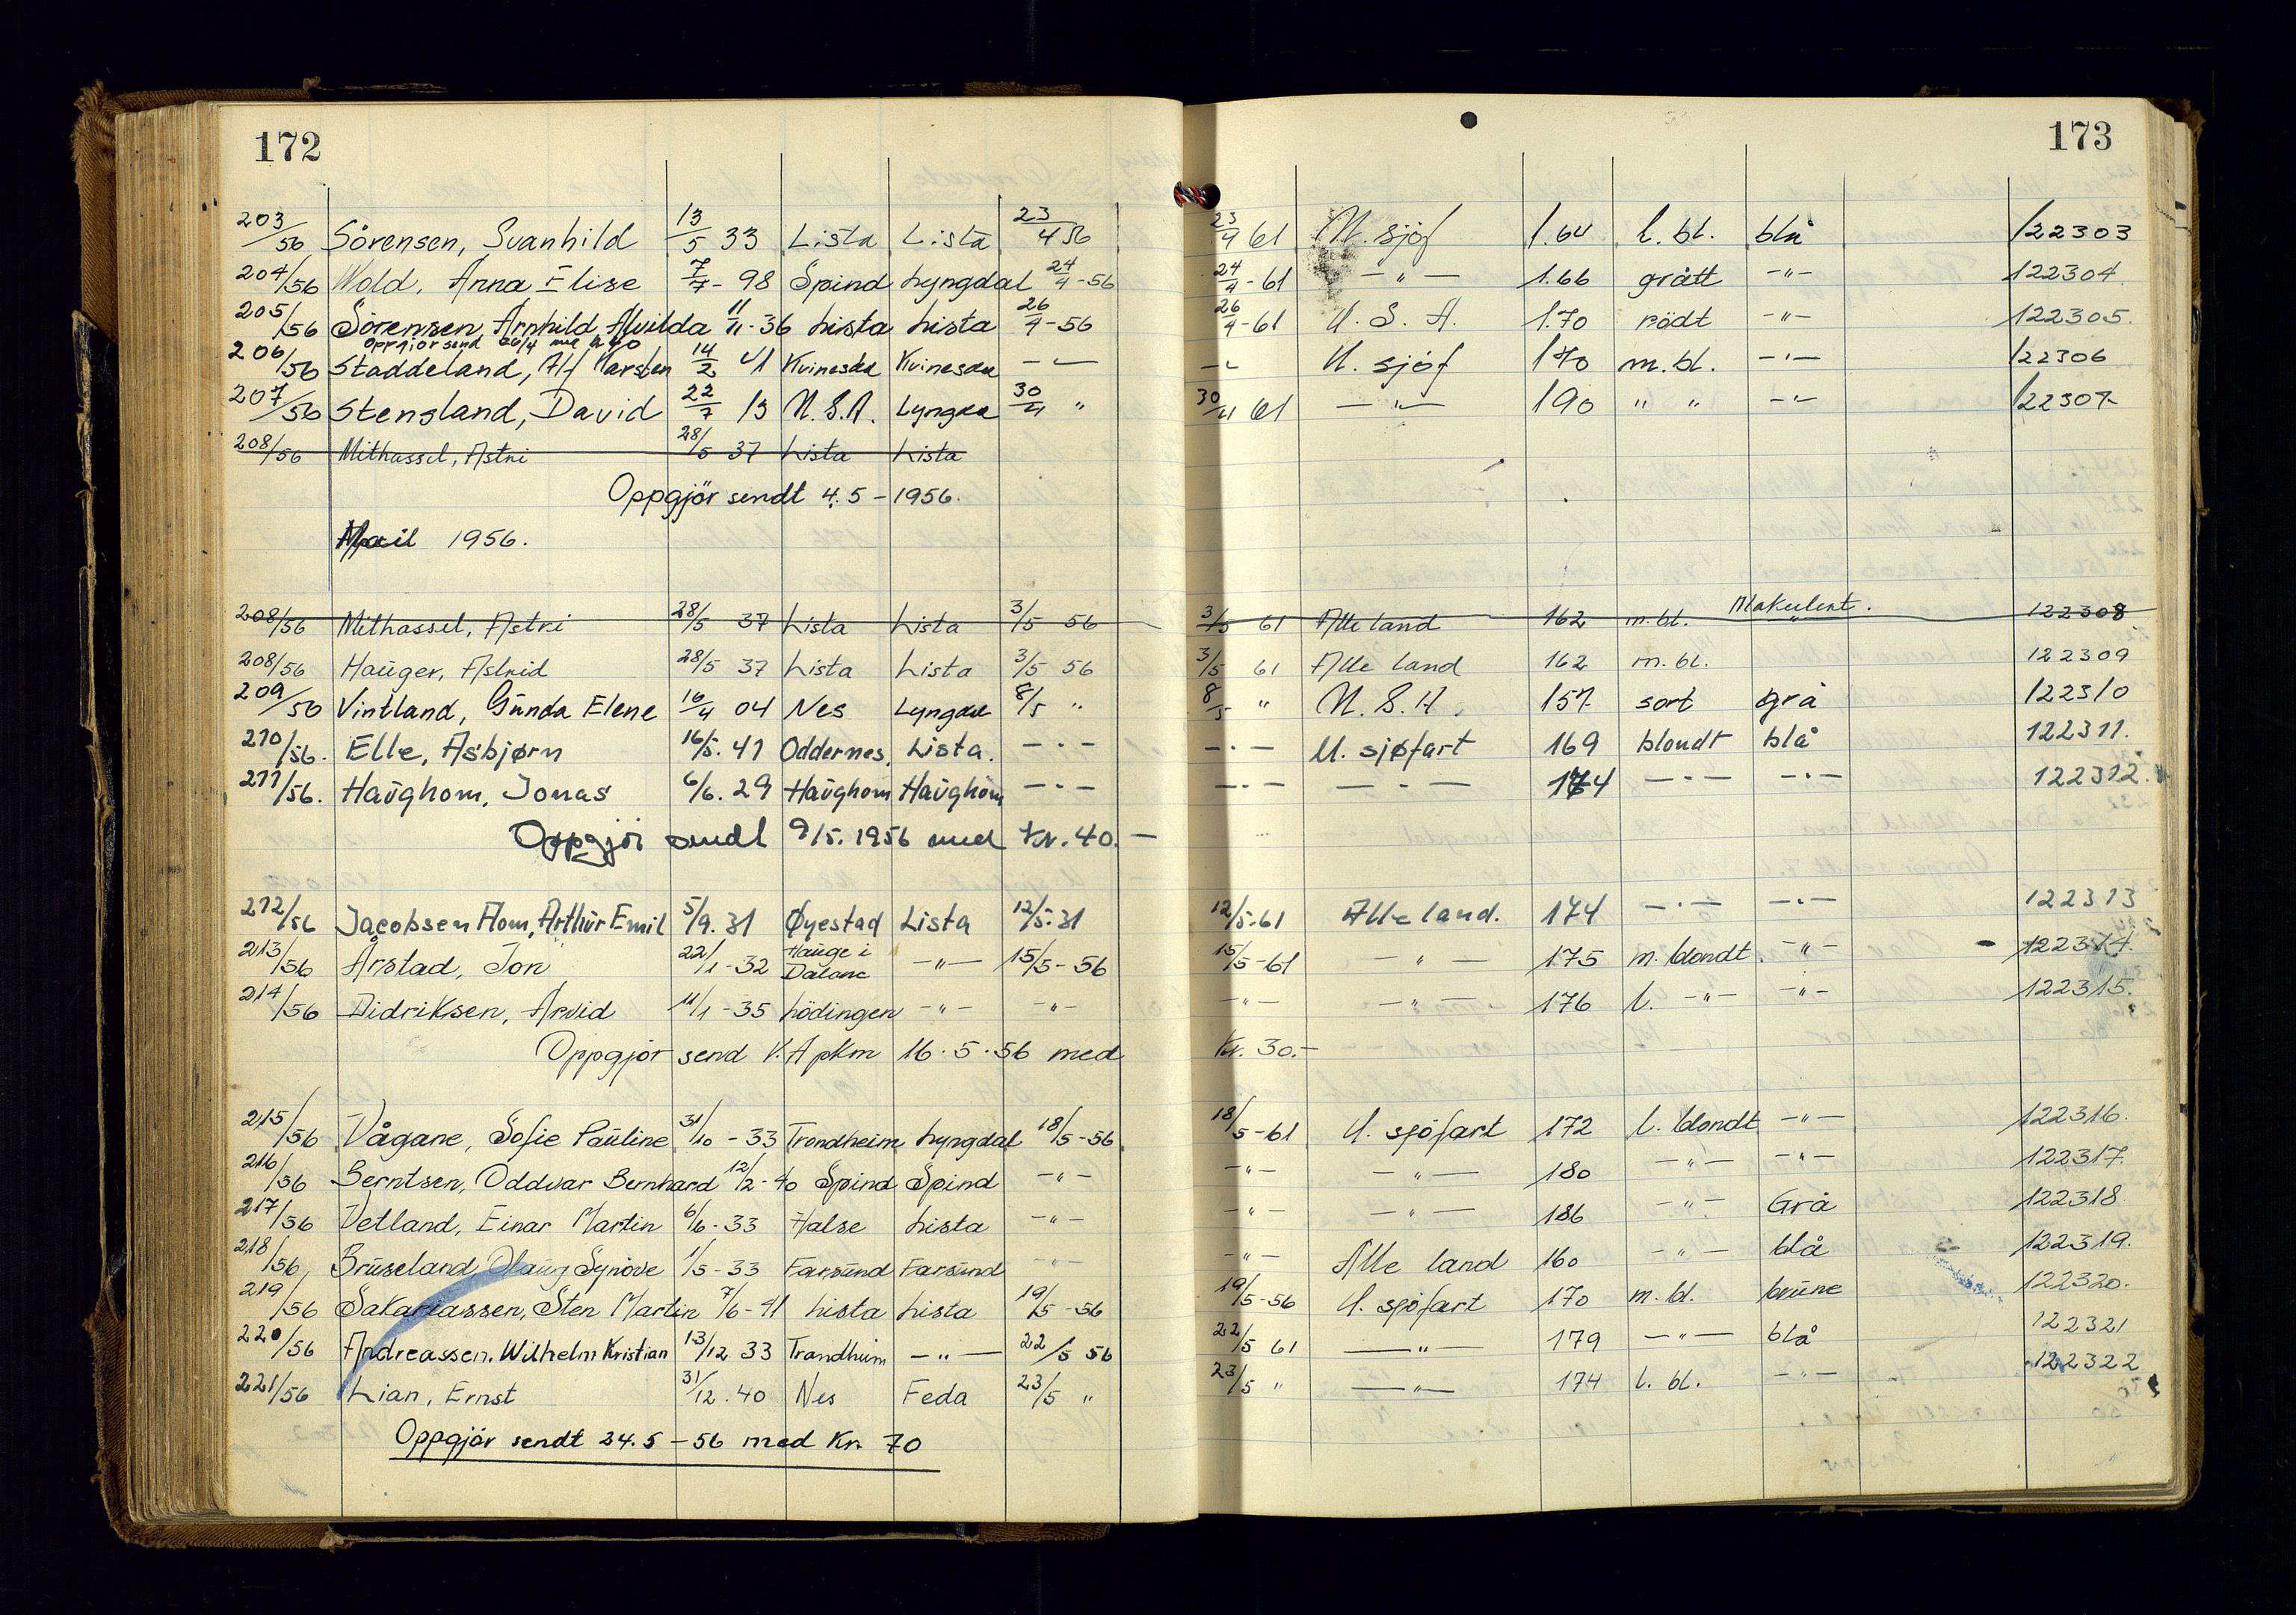 172
173
203/56 Sörensen, Svanhild 13/5 33 Lista Lista 23/4 56 23/4 61 U. sjöf 1.64 l. bl. blå 122303
204/56 Wold, Anna Elise 7/7 - 98 Spind Lyngdal 24/4 - 56 24/4 - 61 — " — 1.66 grått - " - 122304
205/56 Sörensen, Arnhild Alvilda 11/11 - 36 Lista Lista 26/4 - 56 26/4 - 61 U. S. A. 1.70 rödt - " - 122305.
Oppgjör send 26/4
206/56 Staddeland, Alf Karsten 14/2 41 Kvinesdal Kvinesdal - " - - " - U. sjöf 170 m. bl. - " - 122306
207/56 Stensland, David 22/7 13 U.S.A. Lyngdal 30/4 " 30/4 61 — " — 190 " " - " - 122307
208/56 Mithassel, Astri 28/5 37 Lista Lista
Oppgjör sendt 4.5 - 1956.
Mai 1956.
208/56 Mithassel, Astri 28/5 37 Lista Lista 3/5 56 3/5 61 Alle land 162 m. bl. Makulert. 122308
208/56 Hauger, Astrid 28/5 37 Lista Lista 3/5 56 3/5 61 Alle land 162 m. bl. 122309
209/56 Vintland, Gunda Elene 16/4 04 Nes Lyngdal 8/5 " 8/5 " U. S. A. 157 sort grå 122310
210/56. Elle, Asbjørn 16/5. 41 Oddernes, Lista. - " - - " - U. sjøfart 169 blondt blå 122311.
211/56. Haughom, Jonas 6/6. 29 Haughom Haughom - " - - " - — " — 174 — " — - " - 122312.
Oppgjör sendt 9/5. 1956 med Kr. 40.—
212/56 Jacobsen Hom, Arthur Emil 5/9. 31 Øyestad Lista 12/5. 31 12/5. 61 Alle land. 174 — " — - " - 122313
213/56 Årstad, Jon 22/1 - 32 Hauge i Dalane — " — 15/5 - 56 15/5 - 61 — " — 175 m. blondt - " - 122314.
214/56 Didriksen, Arvid 11/1 - 35 Lödingen - " - - " - - " - — " — 176 l. - " - - " - 122315.
Oppgjör send V.A pkm 16.5.56 med Kr. 30.-
215/56 Vågane, Sofie Pauline 31/10 - 33 Trondheim Lyngdal 18/5 - 56 18/5 - 61 U. sjöfart 172 l. blondt - " - 122316.
216/56 Berntsen, Oddvar Bernhard 12/2 - 40 Spind Spind - " - - " - — " — 180 — " — - " - 122317.
217/56 Vetland, Einar Martin 6/6 - 33 Halse Lista - " - - " - — " — 186 - " - Grå 122318
218/56 Bruseland, Olaug Synöve 1/5 - 33 Farsund Farsund - " - - " - Alle land 160 — " — blå 122319.
219/56 Sakariassen, Sten Martin 7/6 - 41 Lista Lista 19/5 - 56 19/5 - 56 U. sjöfart 170 m. bl. brune 122320.
220/56 Andreassen, Wilhelm Kristian 13/12 33 Trondheim — " — 22/5 56 22/5 61 — " — 179 — " — blå 122321
221/56 Lian, Ernst 31/12. 40 Nes Feda 23/5 " 23/5 " — " — 174 l. bl. - " - 122322
Oppgjör sendt 24.5 - 56 med Kr. 70